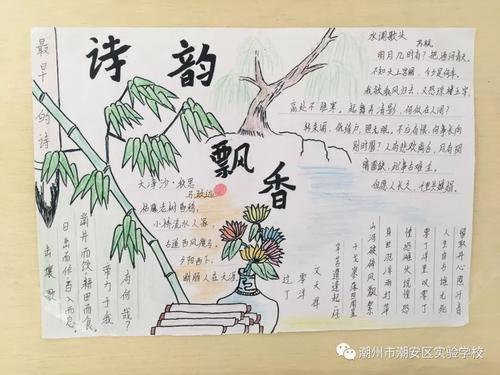 诗韵
飘香
最早的诗
击壤歌
日出而作日入而息。
凿井而饮耕田而食
帝力于我
有何哉?
水调歌头
苏轼
明月几时有?把酒问青天。
不知天上宫阙,今夕是何年。
我欲乘风归去,又恐琼楼玉宇,
高处不胜寒。起舞弄清影,何似在人间?
转朱阁,低绮户,照无眠。不应有恨,何事长向
别时圆?人有悲欢离合,月有阴
晴圆缺,此事古难全。
但愿人长久,千里共婵娟。
天净沙·秋思
马致远
枯藤老树昏鸦,
小桥流水人家
古道西风瘦马。
夕阳西下,
断肠人在天涯。
过零丁洋
文天祥
辛苦遭逢起一经
干戈寥落四周星
山河破碎风飘絮
身世浮沉雨打萍
惶恐滩头说惶恐
零丁洋里叹零丁
人生自古谁无死
留取丹心照汗青
潮州市潮安区实验学校